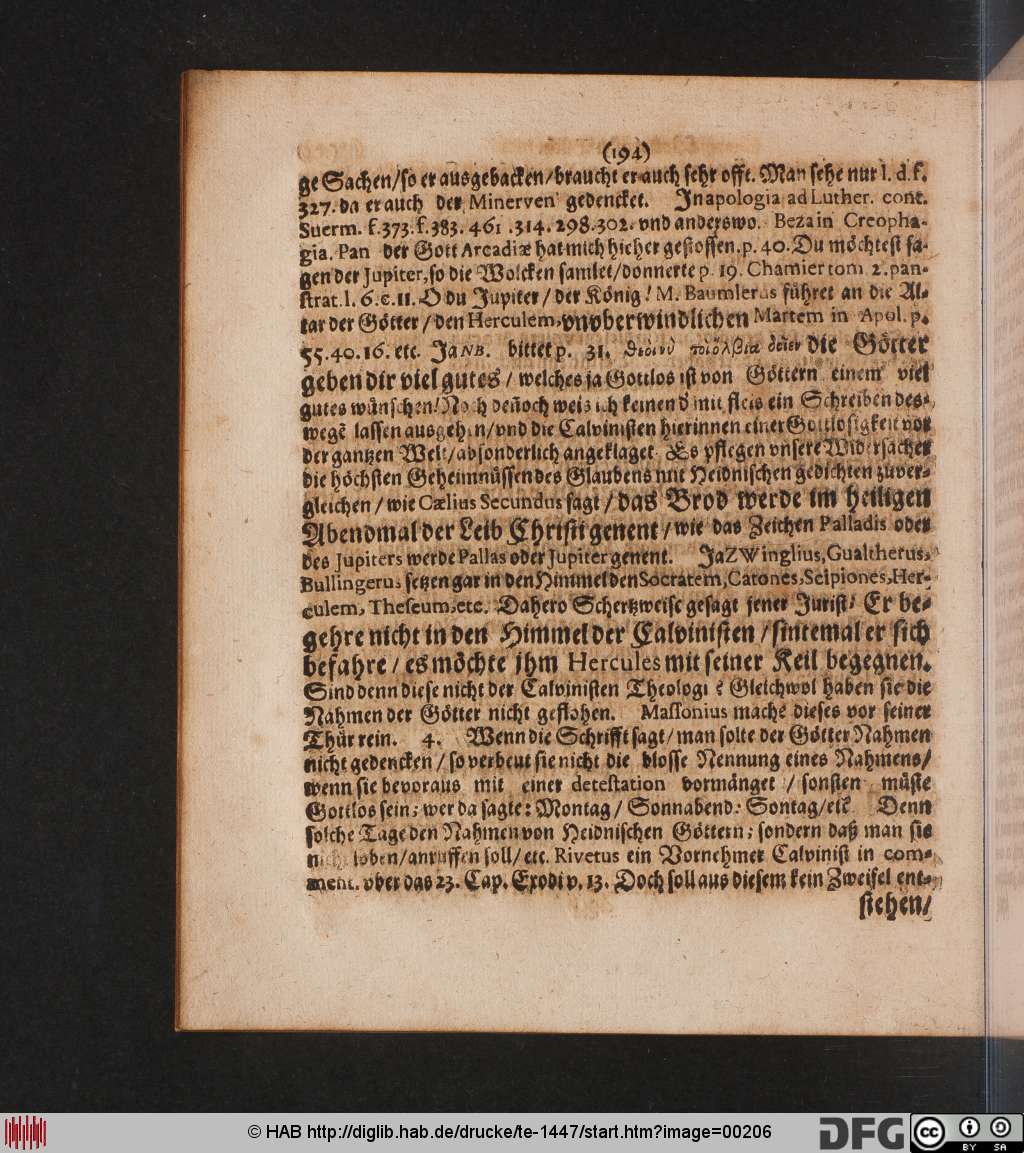 (194)
ge Sachen/so er ausgebacken/braucht er auch sehr offt. Man sehe nur l. d. f.
327. da er auch der Minerven gedencket. In apologia ad Luther. cont.
Suerm. f.373. f.383. 461 .314. 298.302. vnd anderswo. Beza in Creopha-
gia. Pan der Gott Arcadiæ hat mich hieher gestossen. p. 40. Du möchtest sa-
gen der Jupiter, so die Wolcken samlet/donnerte p. 19. Chamier tom 2. pan-
strat. l. 6. c. 11. O du Jupiter/ der König! M. Baumlerus führet an die Al-
tar der Götter/den Herculem, vnvberwindlichen Martem in Apol. p.
55.40.16. etc. Ja NB. bittet p. 31. die Götter
geben dir viel gutes/ welches ja Gottlos ist von Göttern einem viel
gutes wünschen! Noch deñoch weis ich keinen d mit fleis ein Schreiben des-
wegẽ lassen ausgehen/vnd die Calvinisten hierinnen einer Gottlosigkeit vor
der gantzen Welt/absonderlich angeklaget. Es pflegen vnsere Widersacher
die höchsten Geheimnüssen des Glaubens mit Heidnischen gedichten zuver-
gleichen/ wie Cælius Secundus sagt/ das Brod werde im heiligen
Abendmal der Leib Christi genent/ wie das Zeichen Palladis oder
des Jupiters werde Pallas oder Jupiter genent. Ja ZWinglius, Gualtherus,
Bullingerus setzen gar in den Himmel den Socratem, Catones, Scipiones, Her-
culem, Theseum, etc. Dahero Schertzweise gesagt jener Jurist/ Er be-
gehre nicht in den Himmel der Calvinisten/sintemal er sich
befahre/ es möchte jhm Hercules mit seiner Keil begegnen.
Sind denn diese nicht der Calvinisten Theologi? Gleichwol haben sie die
Nahmen der Götter nicht geflohen. Massonius mache dieses vor seiner
Thür rein. 4. Wenn die Schrifft sagt/ man solte der Götter Nahmen
nicht gedencken/ so verbeut sie nicht die blosse Nennung eines Nahmens/
wenn sie bevoraus mit einer detestation vormänget/ sonsten müste
Gottlos sein; wer da sagte: Montag/ Sonnabend: Sontag/etc. Denn
solche Tage den Nahmen von Heidnischen Göttern; sondern daß man sie
nicht loben/anruffen soll/ etc. Rivetus ein Vornehmer Calvinist in com-
ment. vber das 23. Cap. Exodi v. 13. Doch soll aus diesem kein Zweifel ent-
stehen/
© HAB http://diglib.hab.de/drucke/te-1447/start.htm?image=00206
DFG
cc
BY SA